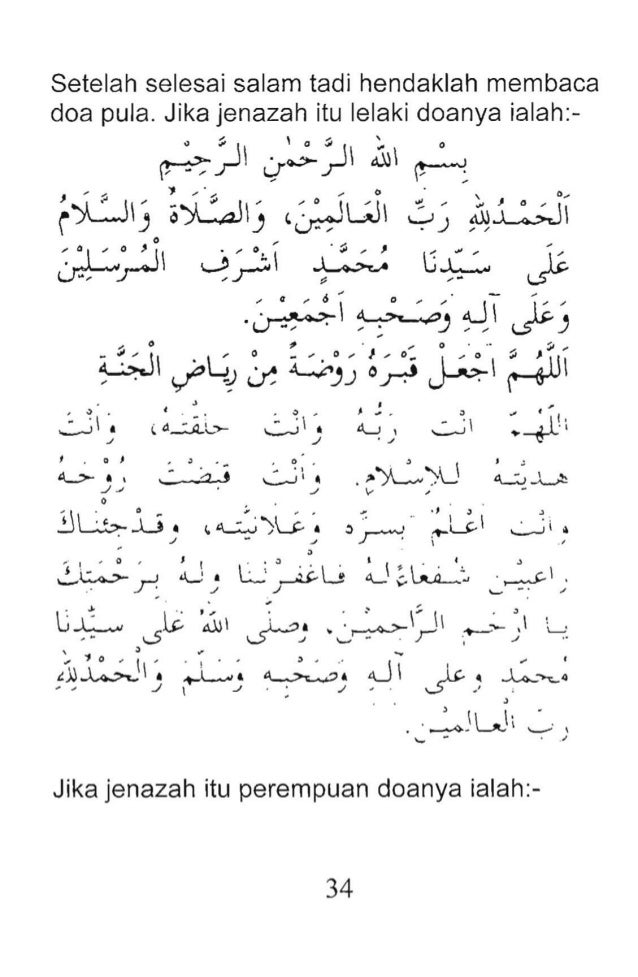 Setelah selesai salam tadi hendaklah membaca
doa pula. Jika jenazah itu lelaki doanya ialah:-
بِسْمِ اللهِ الرَّحْمٰنِ الرَّحِيْمِ
اَلْحَمْدُلِلّٰهِ رَبِّ الْعَالَمِيْنَ، وَالصَّلَاةُ وَالسَّلَامُ
عَلَى سَيِّدِنَا مُحَمَّدٍ اَشْرَفِ الْمُرْسَلِيْنَ
وَعَلَى آلِهِ وَصَحْبِهِ اَجْمَعِيْنَ.
اَللّٰهُمَّ اجْعَلْ قَبْرَهُ رَوْضَةً مِنْ رِيَاضِ الْجَنَّةِ
اَللّٰهُمَّ اَنْتَ رَبُّهُ وَاَنْتَ خَلَقْتَهُ، وَاَنْتَ
هَدَيْتَهُ لِلْاِسْلَامِ. وَاَنْتَ قَبَضْتَ رُوْحَهُ
وَاَنْتَ اَعْلَمُ بِسِرِّهِ وَعَلَانِيَّتِهِ، وَقَدْجِئْنَاكَ
رَاغِبِيْنَ شُفَعَاءً لَهُ فَاغْفِرْلَنَا وَلَهُ بِرَحْمَتِكَ
يَا اَرْحَمَ الرَّاحِمِيْنَ. وَصَلَّى اللهُ عَلَى سَيِّدِنَا
مُحَمَّدٍ وَعَلَى آلِهِ وَصَحْبِهِ وَسَلَّمَ وَالْحَمْدُلِلّٰهِ
رَبِّ الْعَالَمِيْنَ.
Jika jenazah itu perempuan doanya ialah:-
34